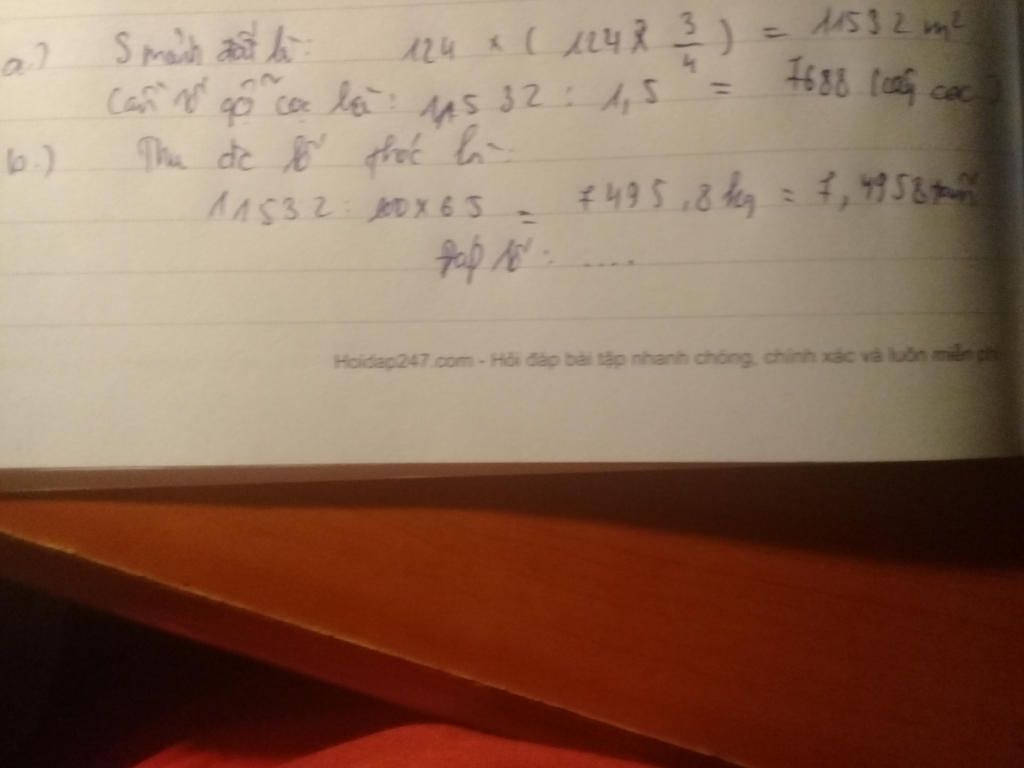 a.) S mảnh đất là: 124 x ( 124 x 3/4 ) = 11532 m²
Cần số gỗ cọc là: 11532 : 1,5 = 7688 (cái cọc)
b.) Thu đc số thóc là:
11532 : 100 x 65 = 7495,8 kg = 7,4958 tấn
Đáp số: ....
Hoidap247.com - Hỏi đáp bài tập nhanh chóng, chính xác và luôn miễn phí